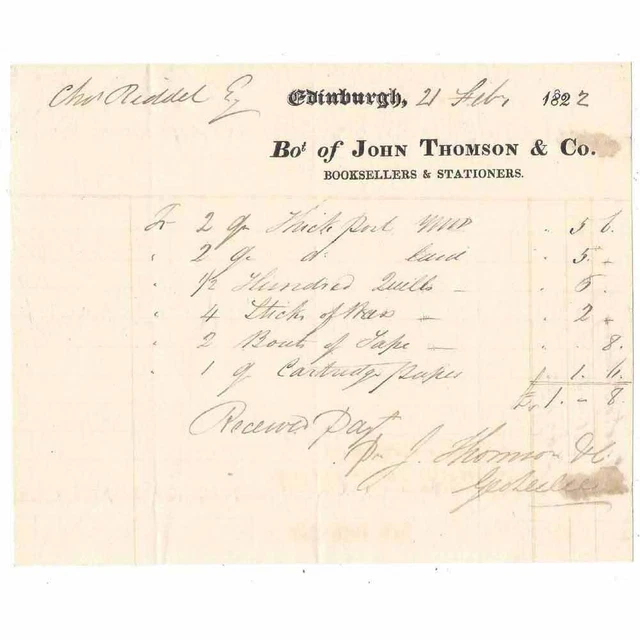 Chas Riddel Esq Edinburgh, 21 Feby 1822
Bot of JOHN THOMSON & Co.
BOOKSELLERS & STATIONERS.
To 2 qr Thick post 5 6
" 2 qr do laid 5 -
" 1/2 Hundred Quills - 6
" 4 Sticks of Wax - 2 -
" 2 Bouts of Tape - 8
" 1 qr Cartridge paper 1. 6
£1. - 8
Received Payt
Pr J. Thomson & Co